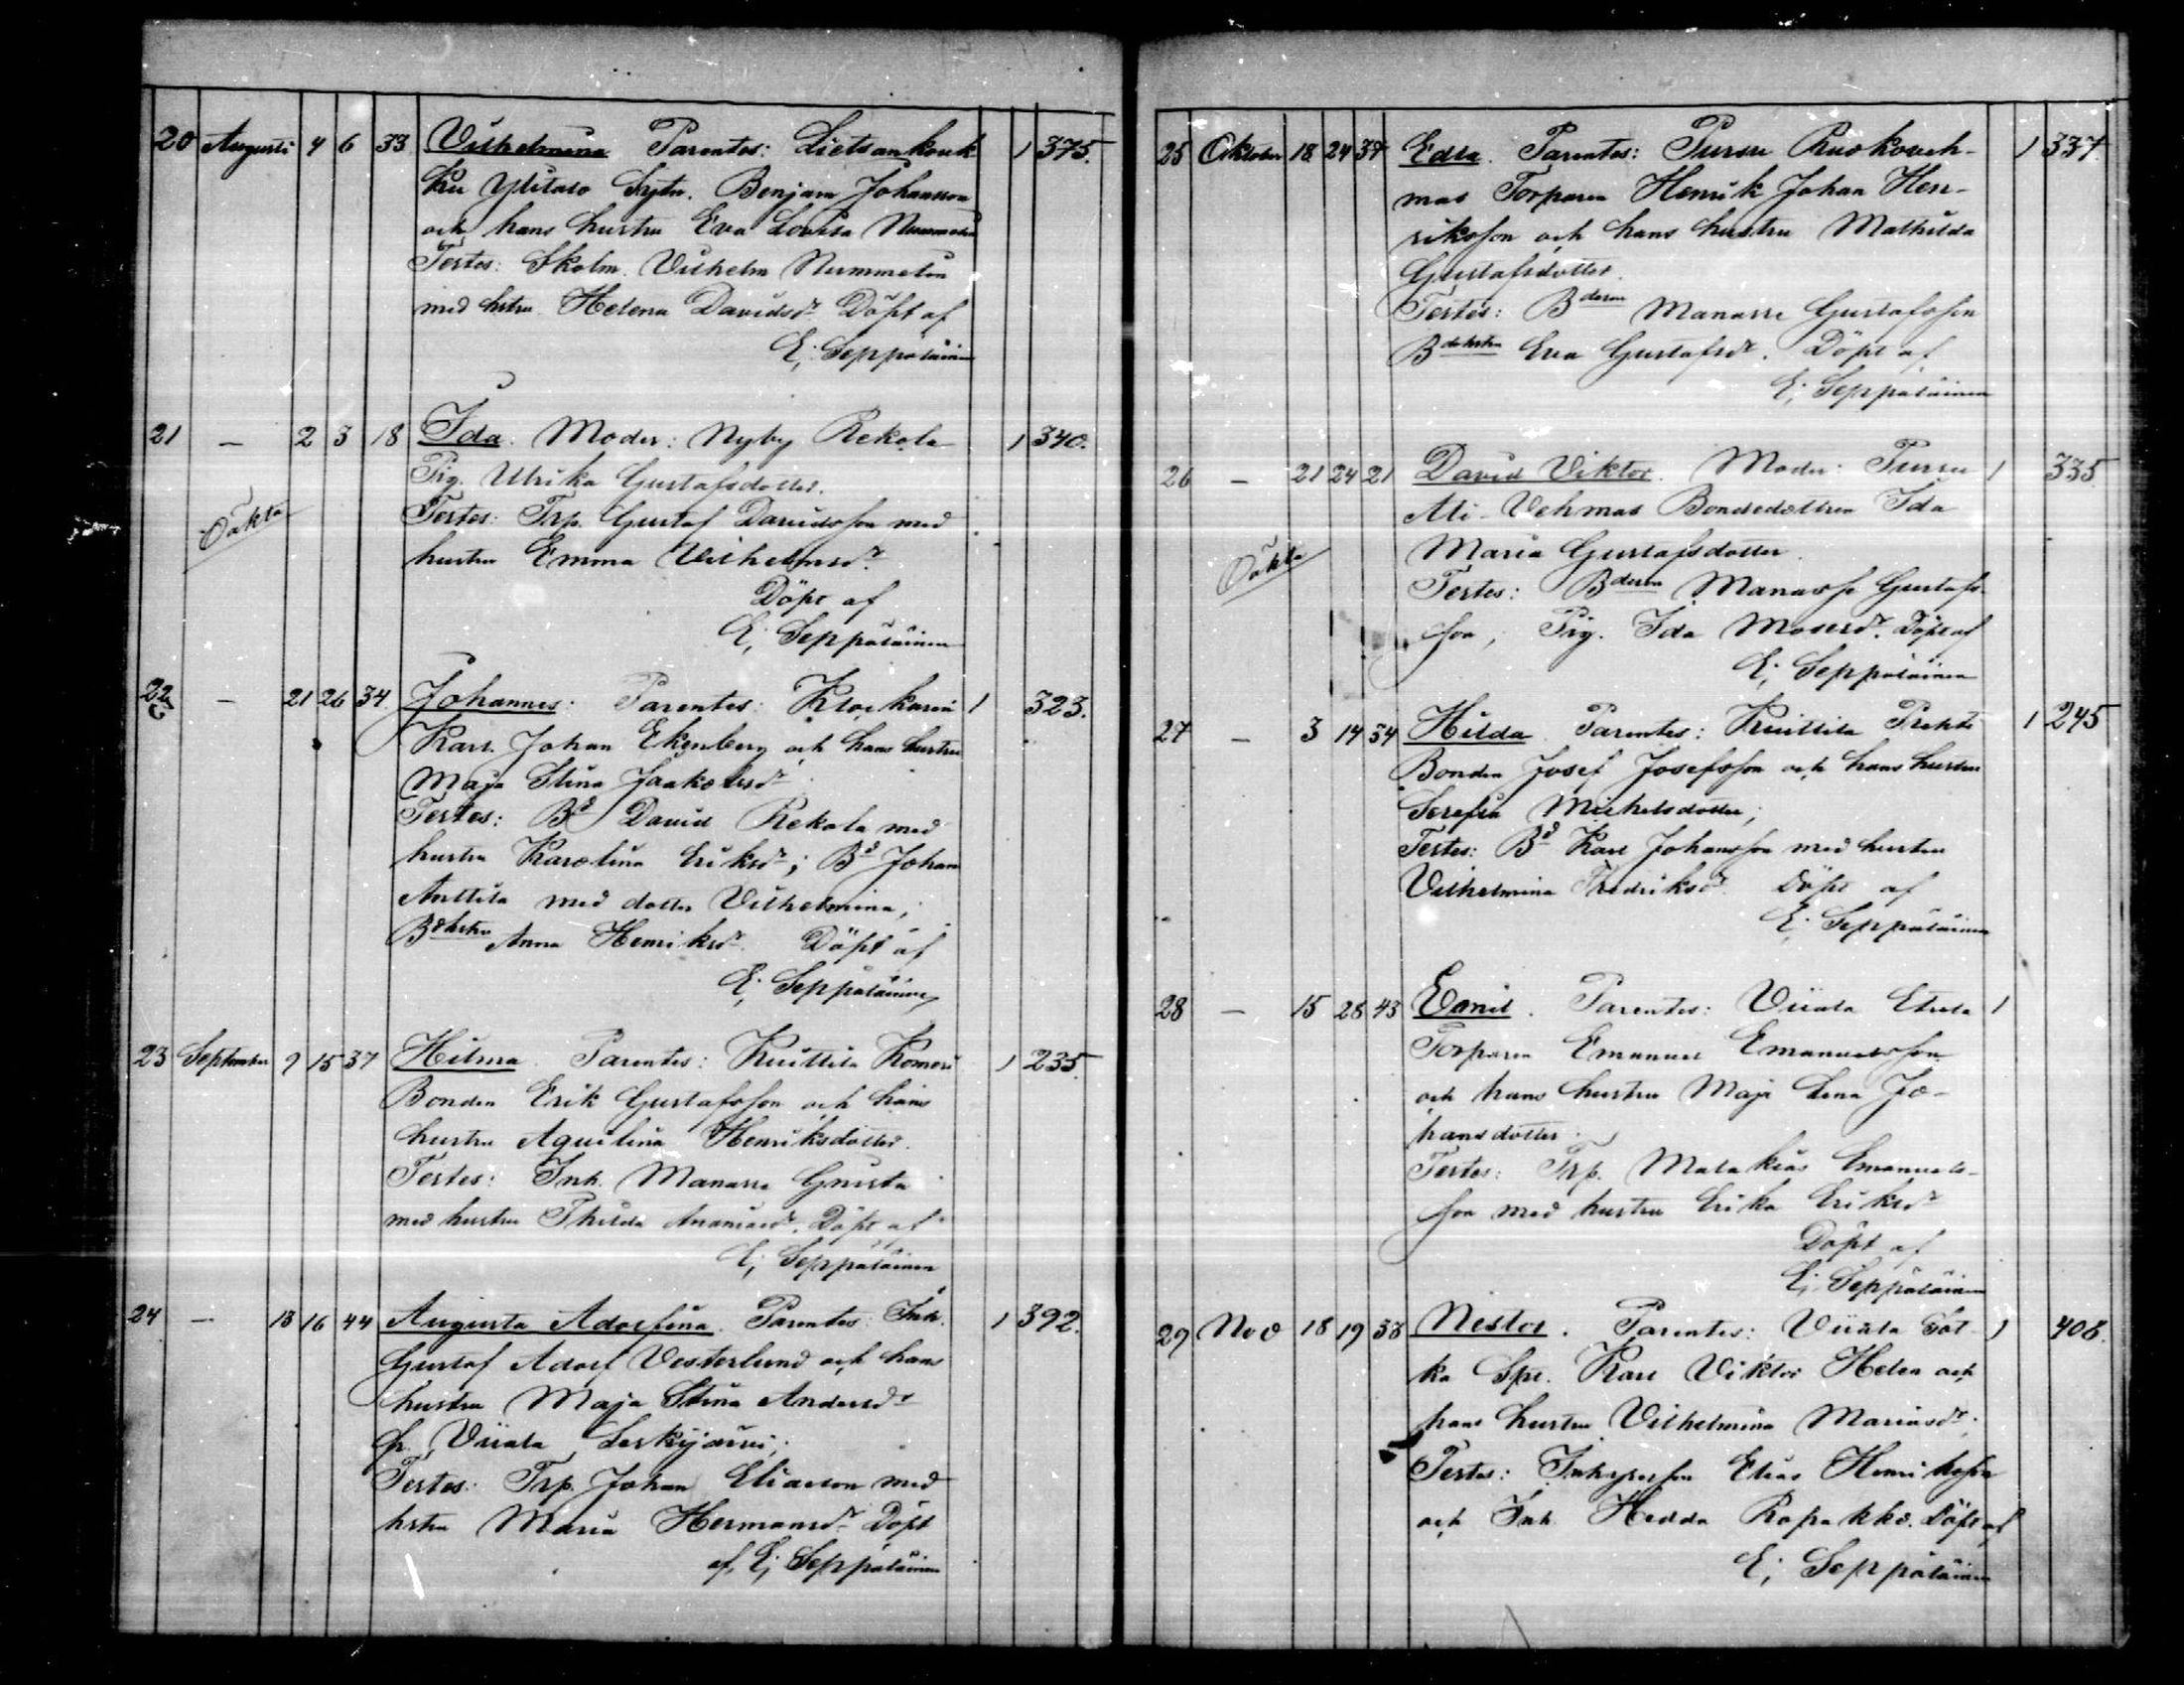 20 Augusti 4 6 33 Vilhelmina Parentes: Lietsankouk 1 375.
ku Ylitalo Sytn. Benjam Johansson
och hans hustru Eva Lovisa Nummelin
Testes: Skolm. Vilhelm Nummelin
med hstru Helena Davidsdr Döpt af
E; Seppäläinen
21 — 2 3 18 Ida. Moder: Nyby Rekola 1 340.
Pig. Ulrika Gustafsdotter.
Oäkta
Testes: Trp. Gustaf Davidsson med
hustru Emma Vilhelmsdr.
Döpt af
E; Seppäläinen
22 — 21 26 34 Johannes: Parentes: Klockaren 1 323.
Karl Johan Ekenberg och hans hustru
Maja Stina Jaakolsdr
Testes: Bd David Rekola med
hustru Karolina Eriksdr; Bd Johan
Anttila med dotter Vilhelmina;
Bdehstru Anna Henriksdr. Döpt af
E; Seppäläinen
23 September 9 15 37 Hilma Parentes: Kuittila Komosi 1 235.
Bonden Erik Gustafsson och hans
hustru Aquilina Henriksdotter.
Testes: Inh. Manasse Gnista
med hustru Thilda Ananiasdr. Döpt af
E; Seppäläinen
24 — 13 16 44 Augusta Adolfina. Parentes: Inh. 1 392.
Gustaf Adolf Vesterlund och hans
hustru Maja Stina Andersdr
fr. Viiala Leskijärvi;
Testes: Trp. Johan Eliasson med
hstru Maria Hermansdr Döpt
af E; Seppäläinen
25 Oktober 18 24 37 Edla. Parentes: Pursu Ruokoveh- 1 337.
mas Torparen Henrik Johan Hen-
riksson och hans hustru Mathilda
Gustafsdotter.
Testes: Bdeson Manasse Gustafsson
Bdehstru Eva Gustafsdr. Döpt af
E; Seppäläinen
26 — 21 24 21 David Viktor. Moder: Pursu 1 335
Ali-Vehmas Bondedottren Ida
Maria Gustafsdotter.
Oäkta
Testes: Bdeson Manasse Gustafs-
son, Pig. Ida Mosesdr. Döpt af
E; Seppäläinen
27 — 3 14 34 Hilda. Parentes: Kuittila Prekti 1 245
Bonden Josef Josefsson och hans hustru
Serefia Mickelsdotter;
Testes: Bd Karl Johansson med hustru
Vilhelmina Fredriksdr. Döpt af
E; Seppäläinen
28 — 15 28 43 Evanil. Parentes: Viiala Etula 1
Torparen Emanuel Emanuelsson
och hans hustru Maja Lena Jo-
hansdotter.
Testes: Trp. Malakias Emanuels-
son med hustru Erika Eriksdr
Döpt af
E; Seppäläinen
29 Nov 18 19 38 Nestor. Parentes: Viiala Sot- 1 408.
ka Spr. Karl Viktor Helen och
hans hustru Vilhelmina Mariasdr.
Testes: Inhyseson Elias Henriksson
och Inh. Hedda Rapakko. Döpt af
E; Seppäläinen